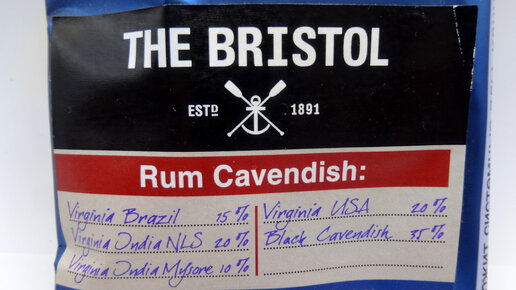 THE BRISTOL
ESTD 1891
Rum Cavendish:
Virginia Brazil 15%
Virginia India NLS 20%
Virginia India Mysore 10%
Virginia USA 20%
Black Cavendish 35%